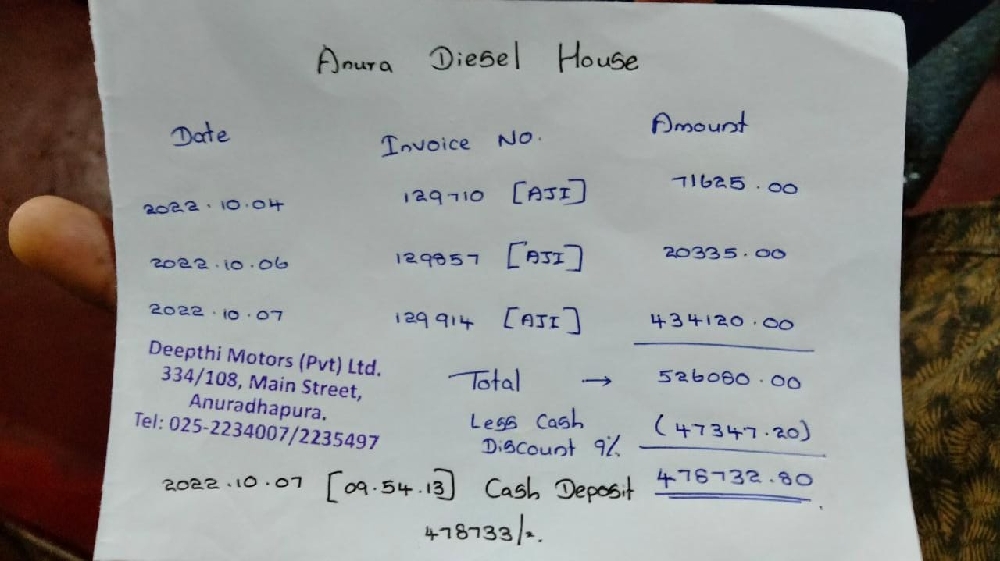 Anura Diesel House
Date Invoice No. Amount
2022.10.04 129710 [AJI] 71625.00
2022.10.06 129857 [AJI] 20335.00
2022.10.07 129914 [AJI] 434120.00
Total → 526080.00
Less Cash Discount 9% (47347.20)
478732.80
Deepthi Motors (Pvt) Ltd.
334/108, Main Street,
Anuradhapura.
Tel: 025-2234007/2235497
2022.10.07 [09.54.13] Cash Deposit
478733/=.